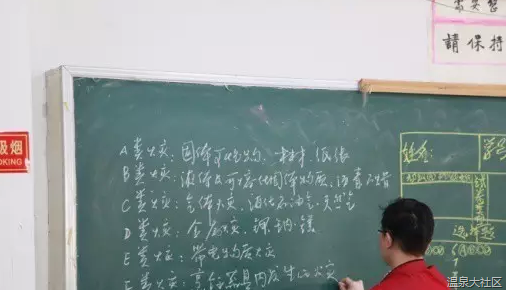 請保持
吸烟
OKING
A类火灾：固体可燃物、木材、纸张
B类火灾：液体或可熔化固体物质，沥青石蜡
C类火灾：气体火灾，液化石油气、天然气
D类火灾：金属火灾，钾钠镁
E类火灾：带电物质火灾
F类火灾：烹饪器具内发生的火灾
选择题
温泉大社区